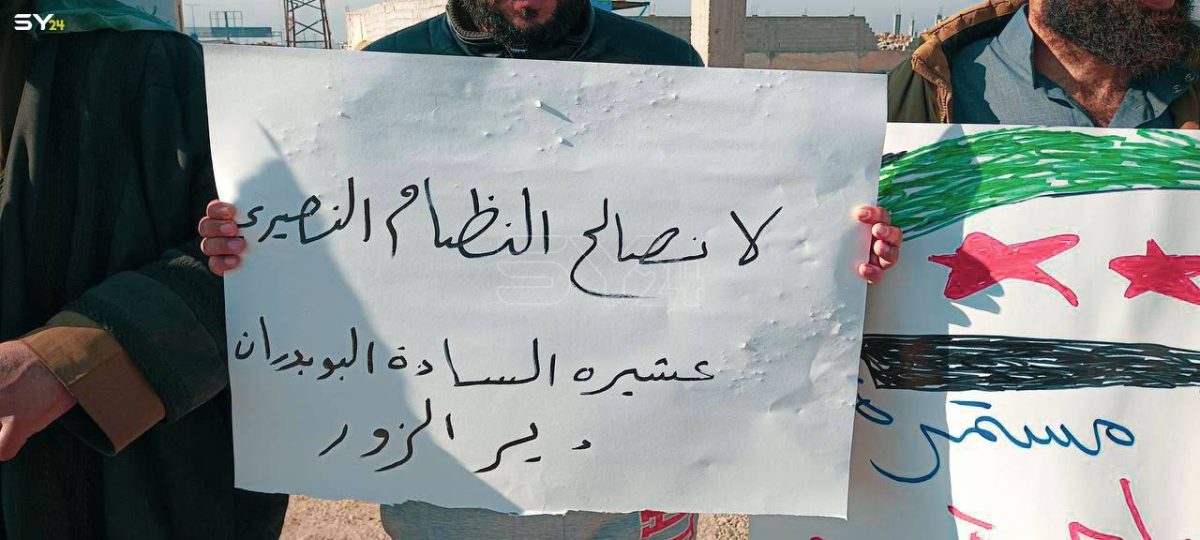 SY24
لا نصالح النظام النصيري
عشيره السادة البوبدران
دير الزور
SY24
مستمرة